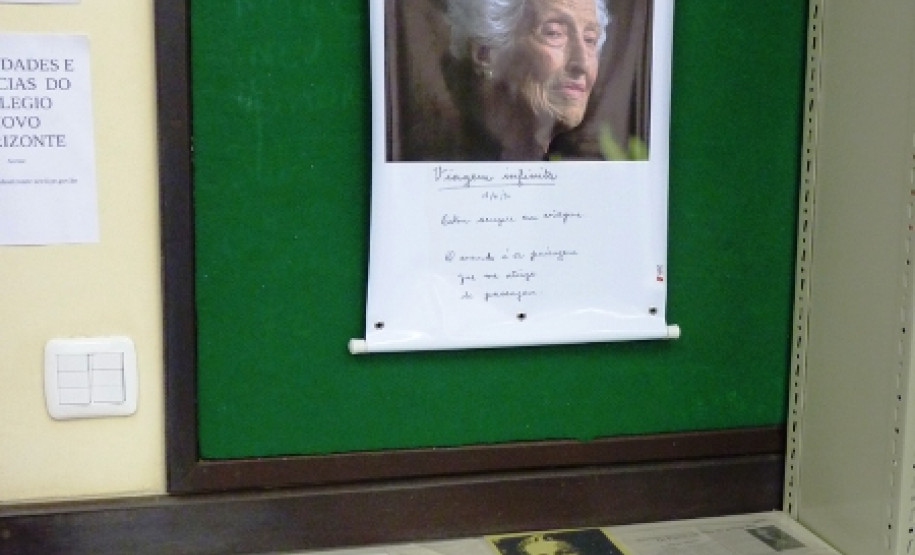 DADES E
CIAS DO
LEGIO
OVO
RIZONTE
Viagem infinita
Estou sempre em viagem
O mundo é a paisagem
que me atinge
de passagem